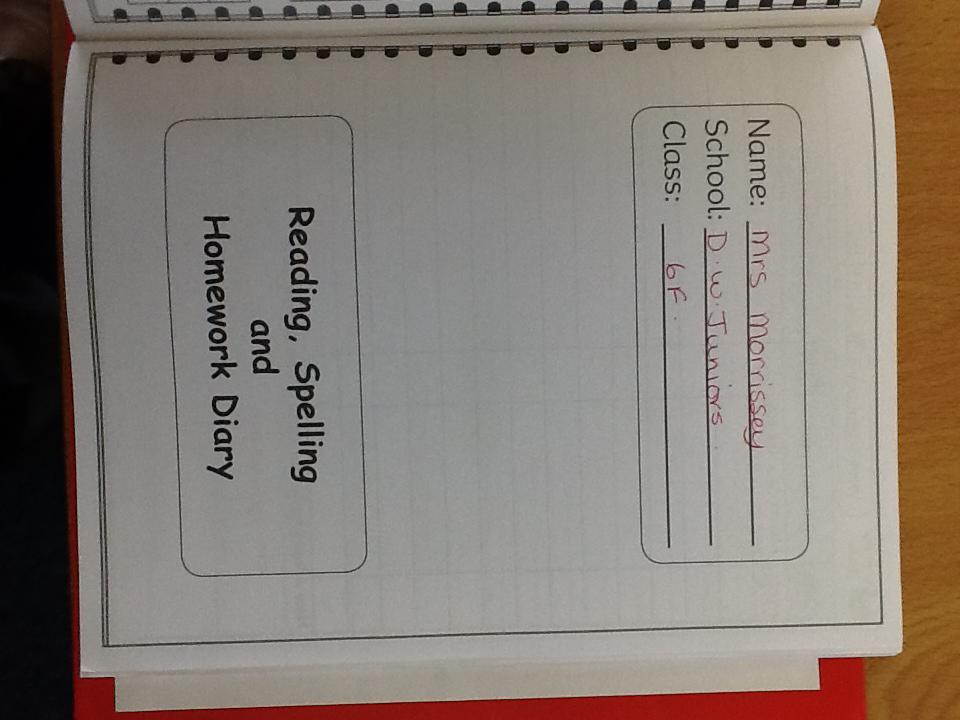 Name: Mrs Morrissey
School: D.W.Juniors.
Class: 6F.
Reading, Spelling
and
Homework Diary